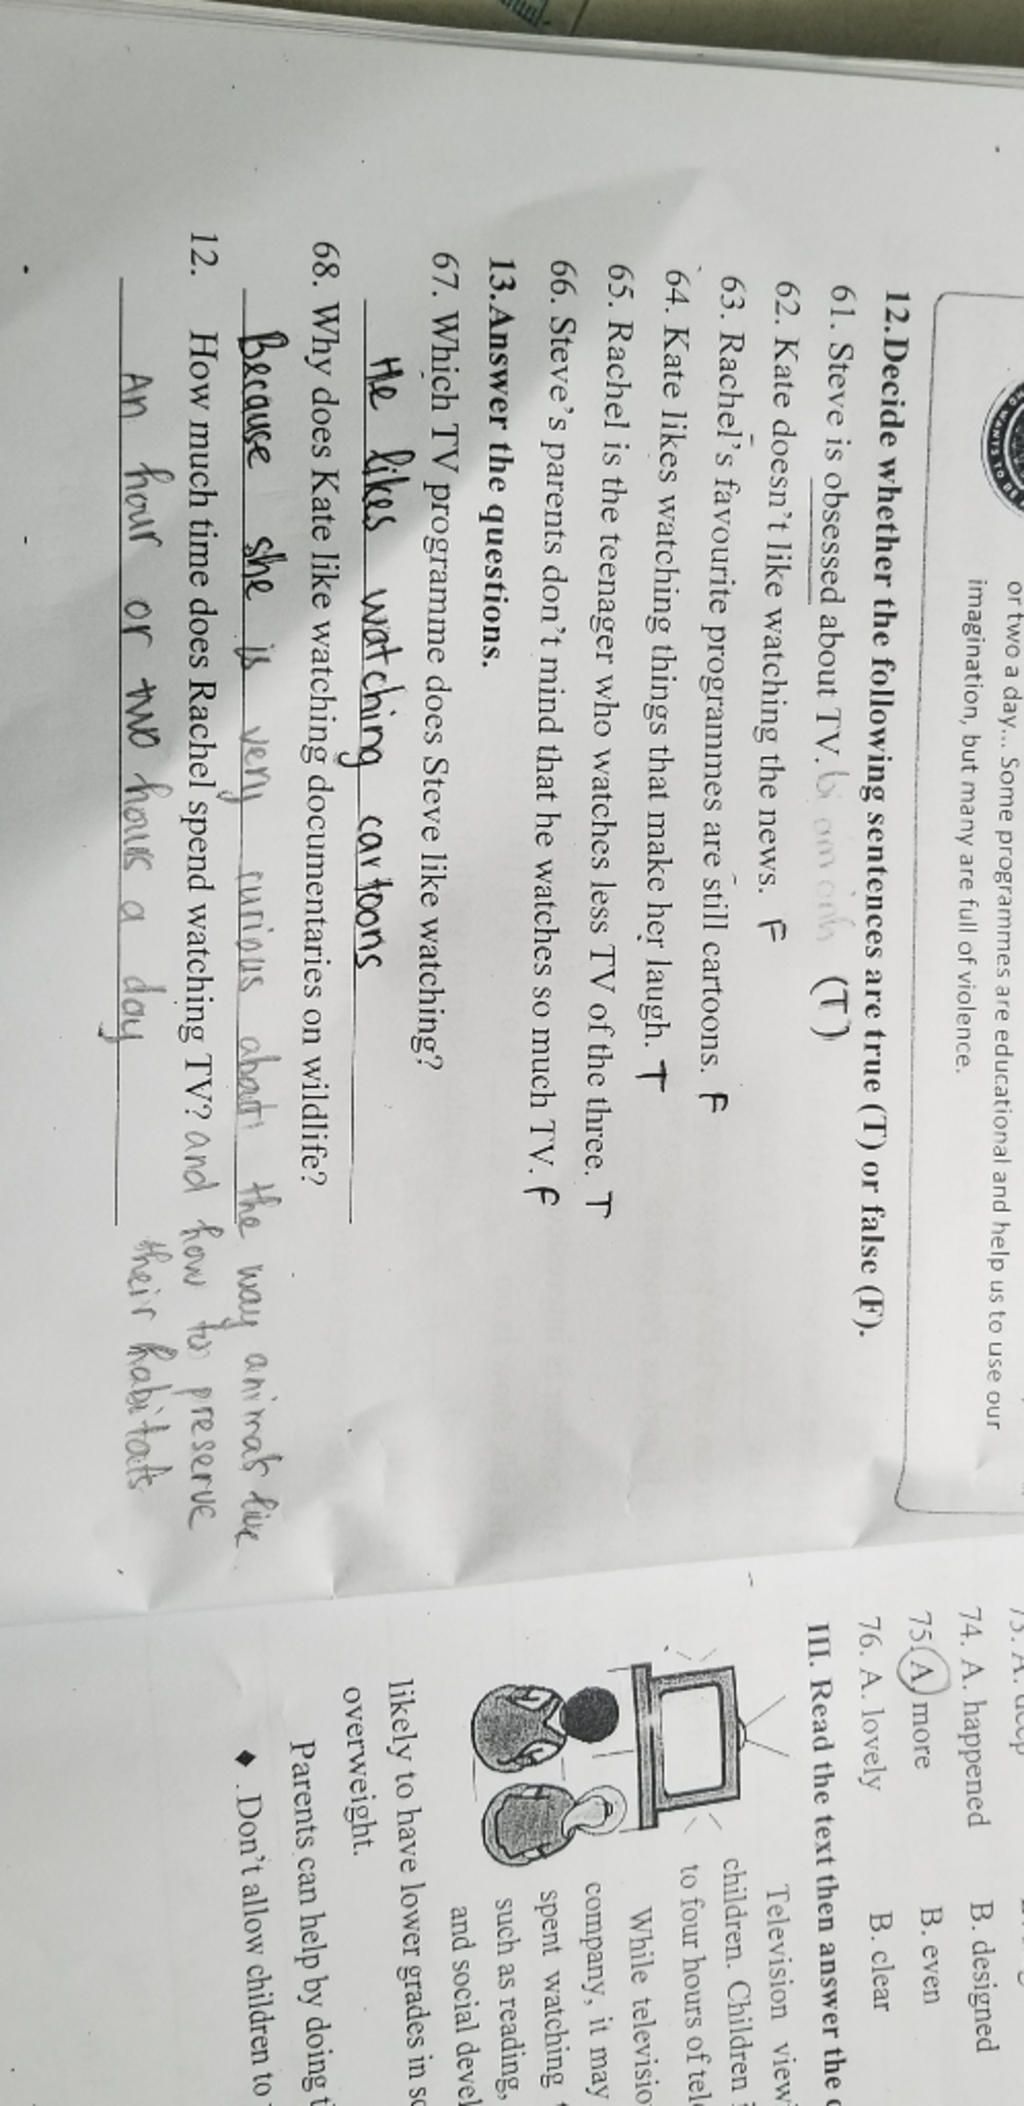 or two a day... Some programmes are educational and help us to use our
imagination, but many are full of violence.
12.Decide whether the following sentences are true (T) or false (F).
61. Steve is obsessed about TV. (T)
62. Kate doesn't like watching the news. F
63. Rachel's favourite programmes are still cartoons. F
64. Kate likes watching things that make her laugh. T
65. Rachel is the teenager who watches less TV of the three. T
66. Steve's parents don't mind that he watches so much TV. F
13.Answer the questions.
67. Which TV programme does Steve like watching?
He likes watching cartoons
68. Why does Kate like watching documentaries on wildlife?
Because she is very curious about the way animals live
12. How much time does Rachel spend watching TV? and how to preserve
their habitats
An hour or two hours a day
74. A. happened B. designed
75. A more B. even
76. A. lovely B. clear
III. Read the text then answer the
Television view
children. Children
to four hours of tel
While televisio
company, it may
spent watching
such as reading,
and social devel
likely to have lower grades in sc
overweight.
Parents can help by doing t
◆ .Don't allow children to